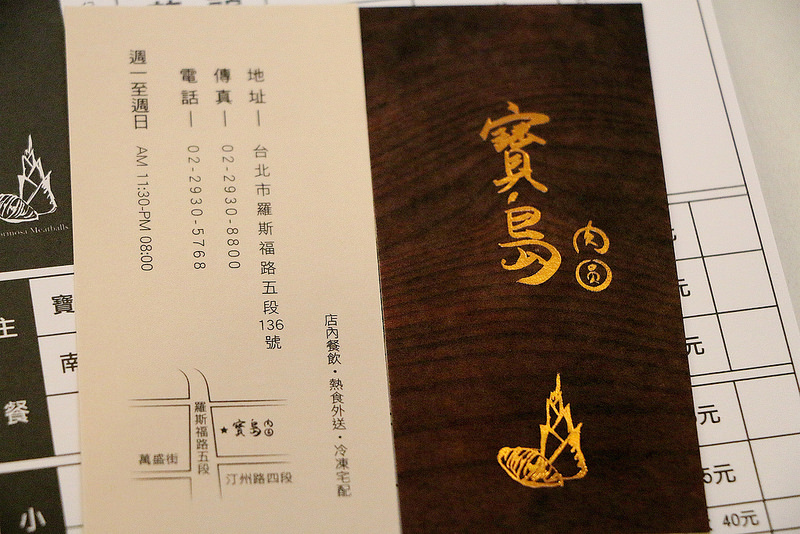 寶島
肉圓
店內餐飲・熱食外送・冷凍宅配
地址— 台北市羅斯福路五段136號
傳真— 02-2930-8800
電話— 02-2930-5768
週一至週日 AM 11:30-PM 08:00
羅斯福路五段
★寶島肉圓
萬盛街
汀州路四段
ormosa Meatballs
主餐
寶
南
小
元
元
元
元
5元
40元